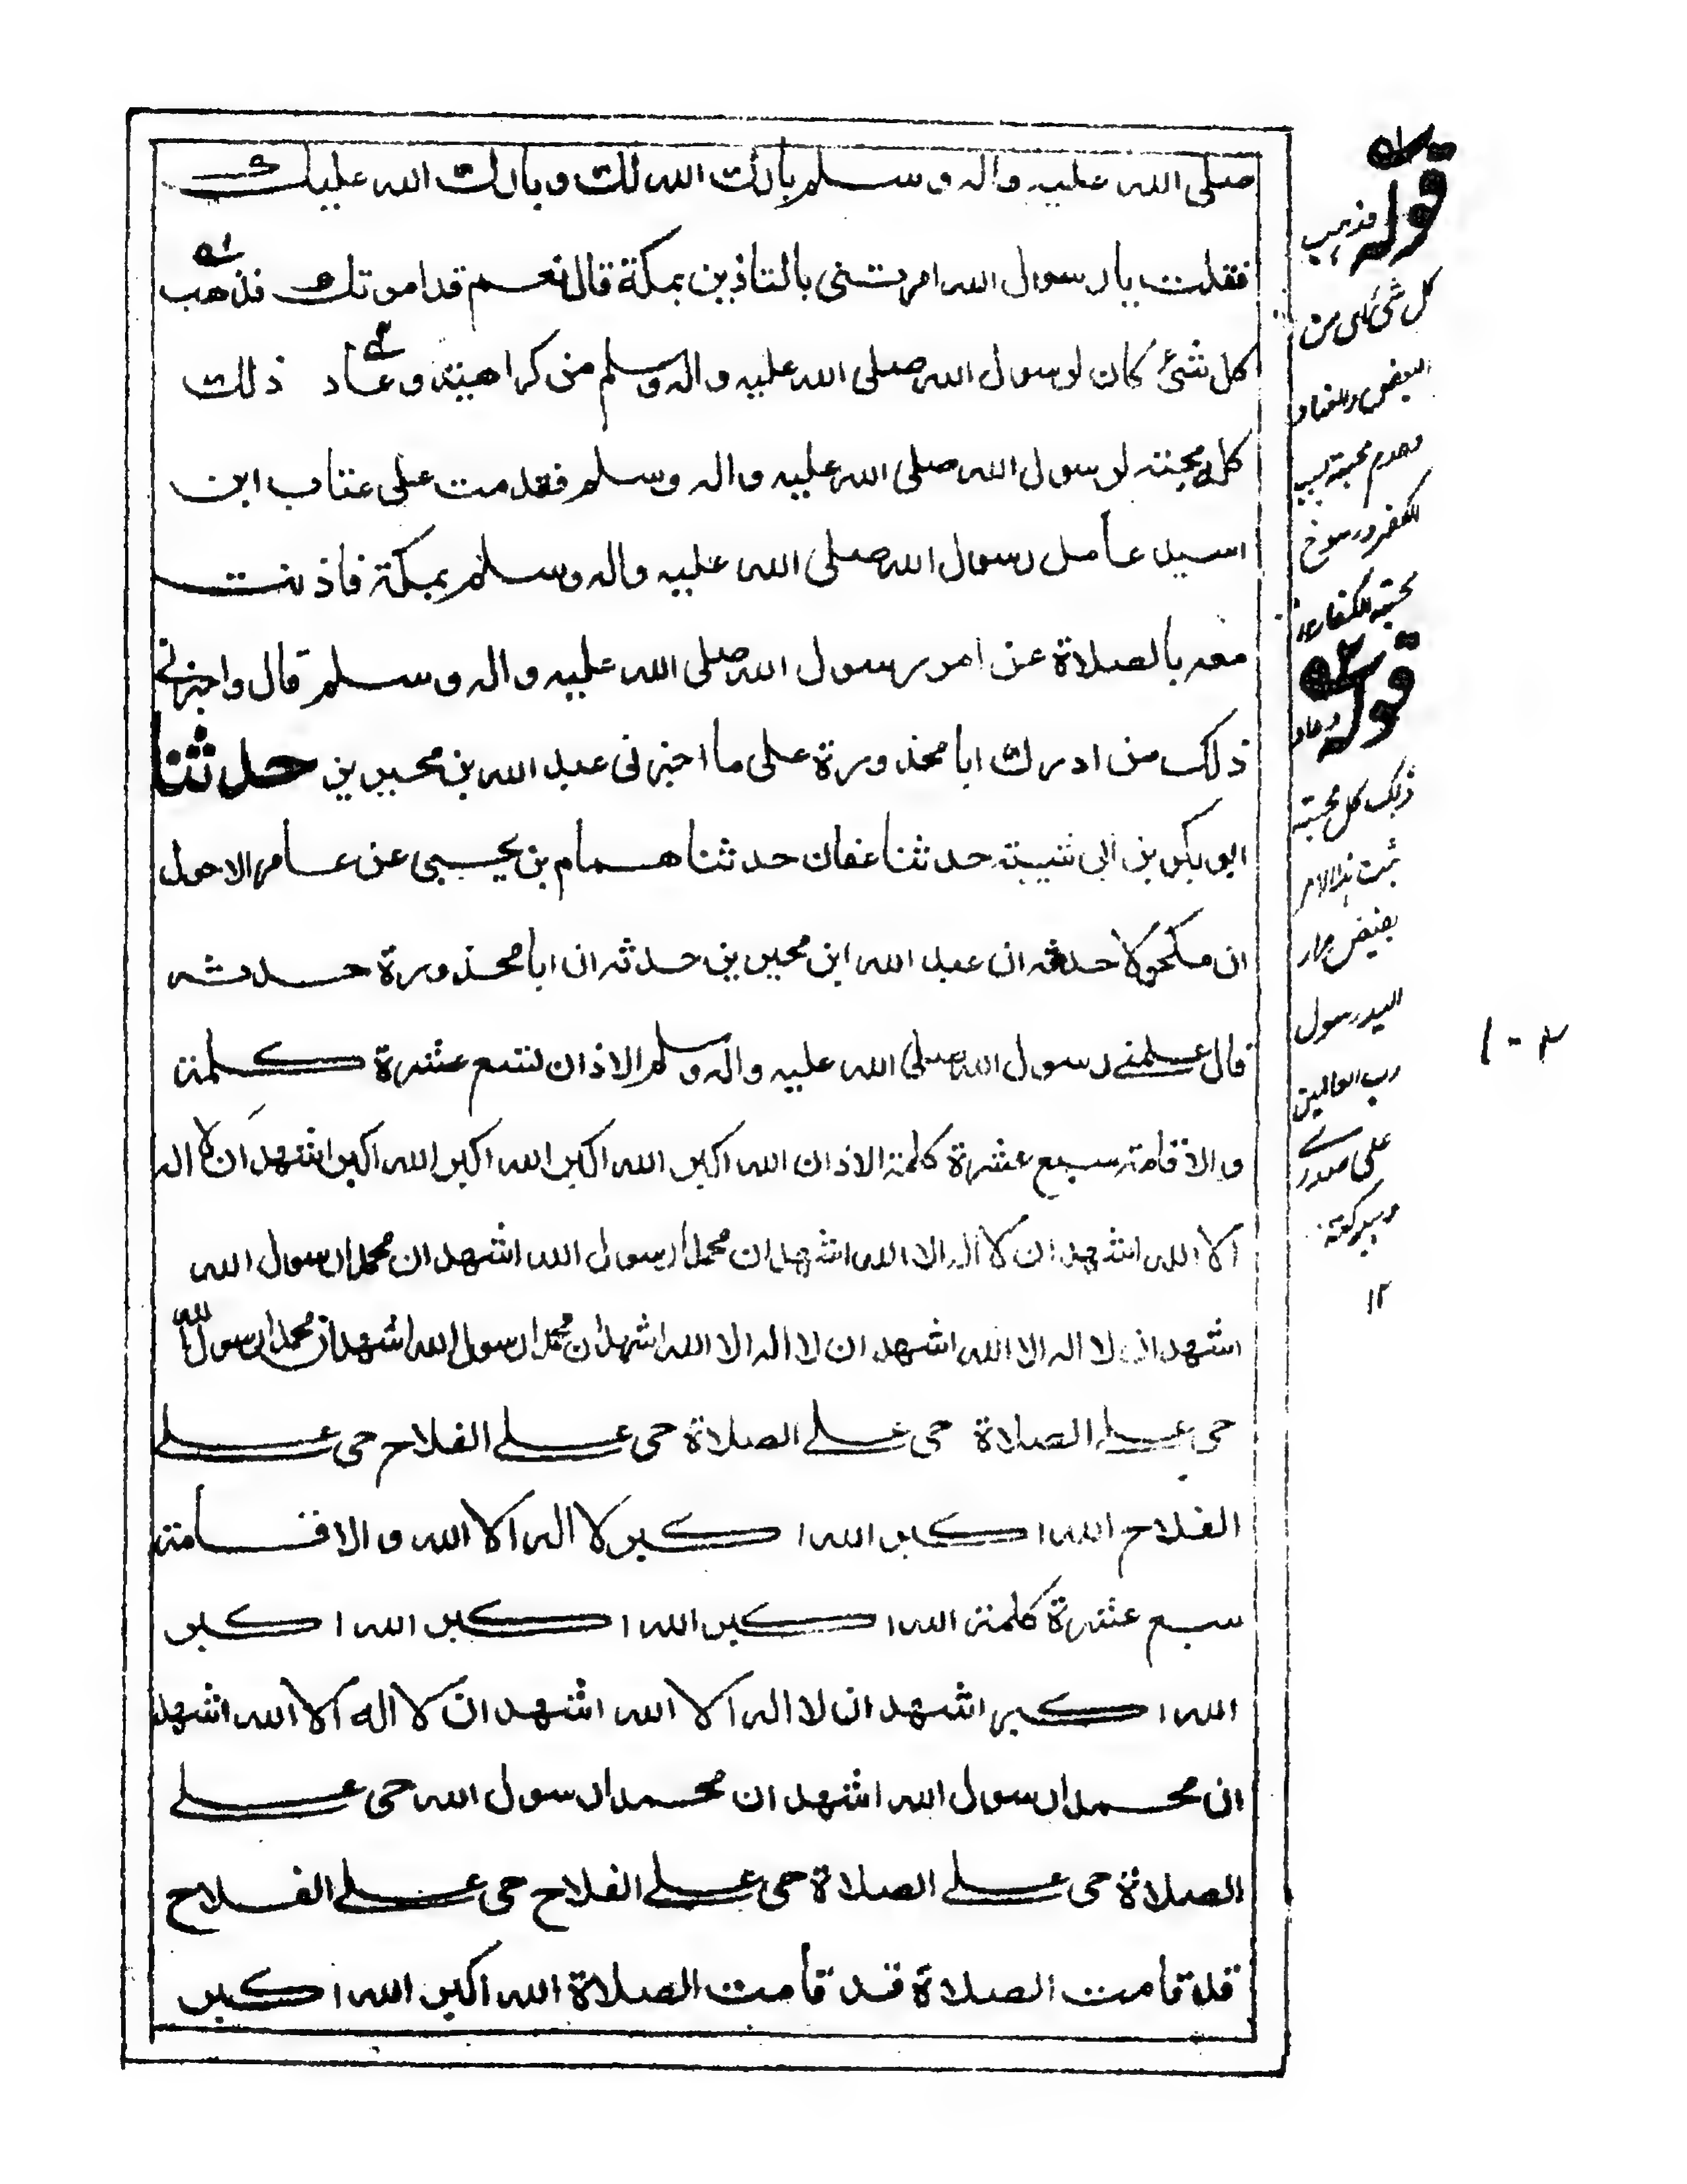 صلى الله عليه واله وسلم بارك الله لك وبارك الله عليك
فقلت يا رسول الله امرتنى بالتاذين بمكة قال نعم قد امرتك فذهب
كل شئ كان لرسول الله صلى الله عليه واله وسلم من كراهيته وعاد ذلك
كله محبته لرسول الله صلى الله عليه واله وسلم فقدمت على عتاب ابن
اسيد عامل رسول الله صلى الله عليه واله وسلم بمكة فاذنت
معه بالصلاة عن امر رسول الله صلى الله عليه واله وسلم قال واخبرني
ذلك من ادرك ابا محذورة على ما اخبرنى عبد الله بن محيريز حدثنا
ابو بكر بن ابى شيبة حدثنا عفان حدثنا همام بن يحيى عن عامر الاحول
ان مكحولا حدثه ان عبد الله ابن محيريز حدثه ان ابا محذورة حدثه
قال علمنے رسول الله صلى الله عليه واله وسلم الاذان تسع عشرة كلمة
والاقامة سبع عشرة كلمة الاذان الله اكبر الله اكبر الله اكبر الله اكبر اشهد ان لا اله
الا الله اشهد ان لا اله الا الله اشهد ان محمدا رسول الله اشهد ان محمدا رسول الله
اشهد ان لا اله الا الله اشهد ان لا اله الا الله اشهد ان محمدا رسول الله اشهد ان محمدا رسول الله
حى علے الصلاة حى علے الصلاة حى علے الفلاح حى علے
الفلاح الله اكبر الله اكبر لا اله الا الله والاقامة
سبع عشرة كلمة الله اكبر الله اكبر الله اكبر
الله اكبر اشهد ان لا اله الا الله اشهد ان لا اله الا الله اشهد
ان محمدا رسول الله اشهد ان محمدا رسول الله حى علے
الصلاة حى علے الصلاة حى علے الفلاح حى علے الفلاح
قد قامت الصلاة قد قامت الصلاة الله اكبر الله اكبر
قوله فذهب
كل شئ كان من
البغض والعناد
وعدم محبة بسبب
الكفر ورسوخ
محبة الكفار
قوله وعاد
ذلك كل محبة
ثبت هذا الامر
بفيض مرار
اليد رسول
رب العالمين
على صدرے
وببركته
۱۲
۱۰۲